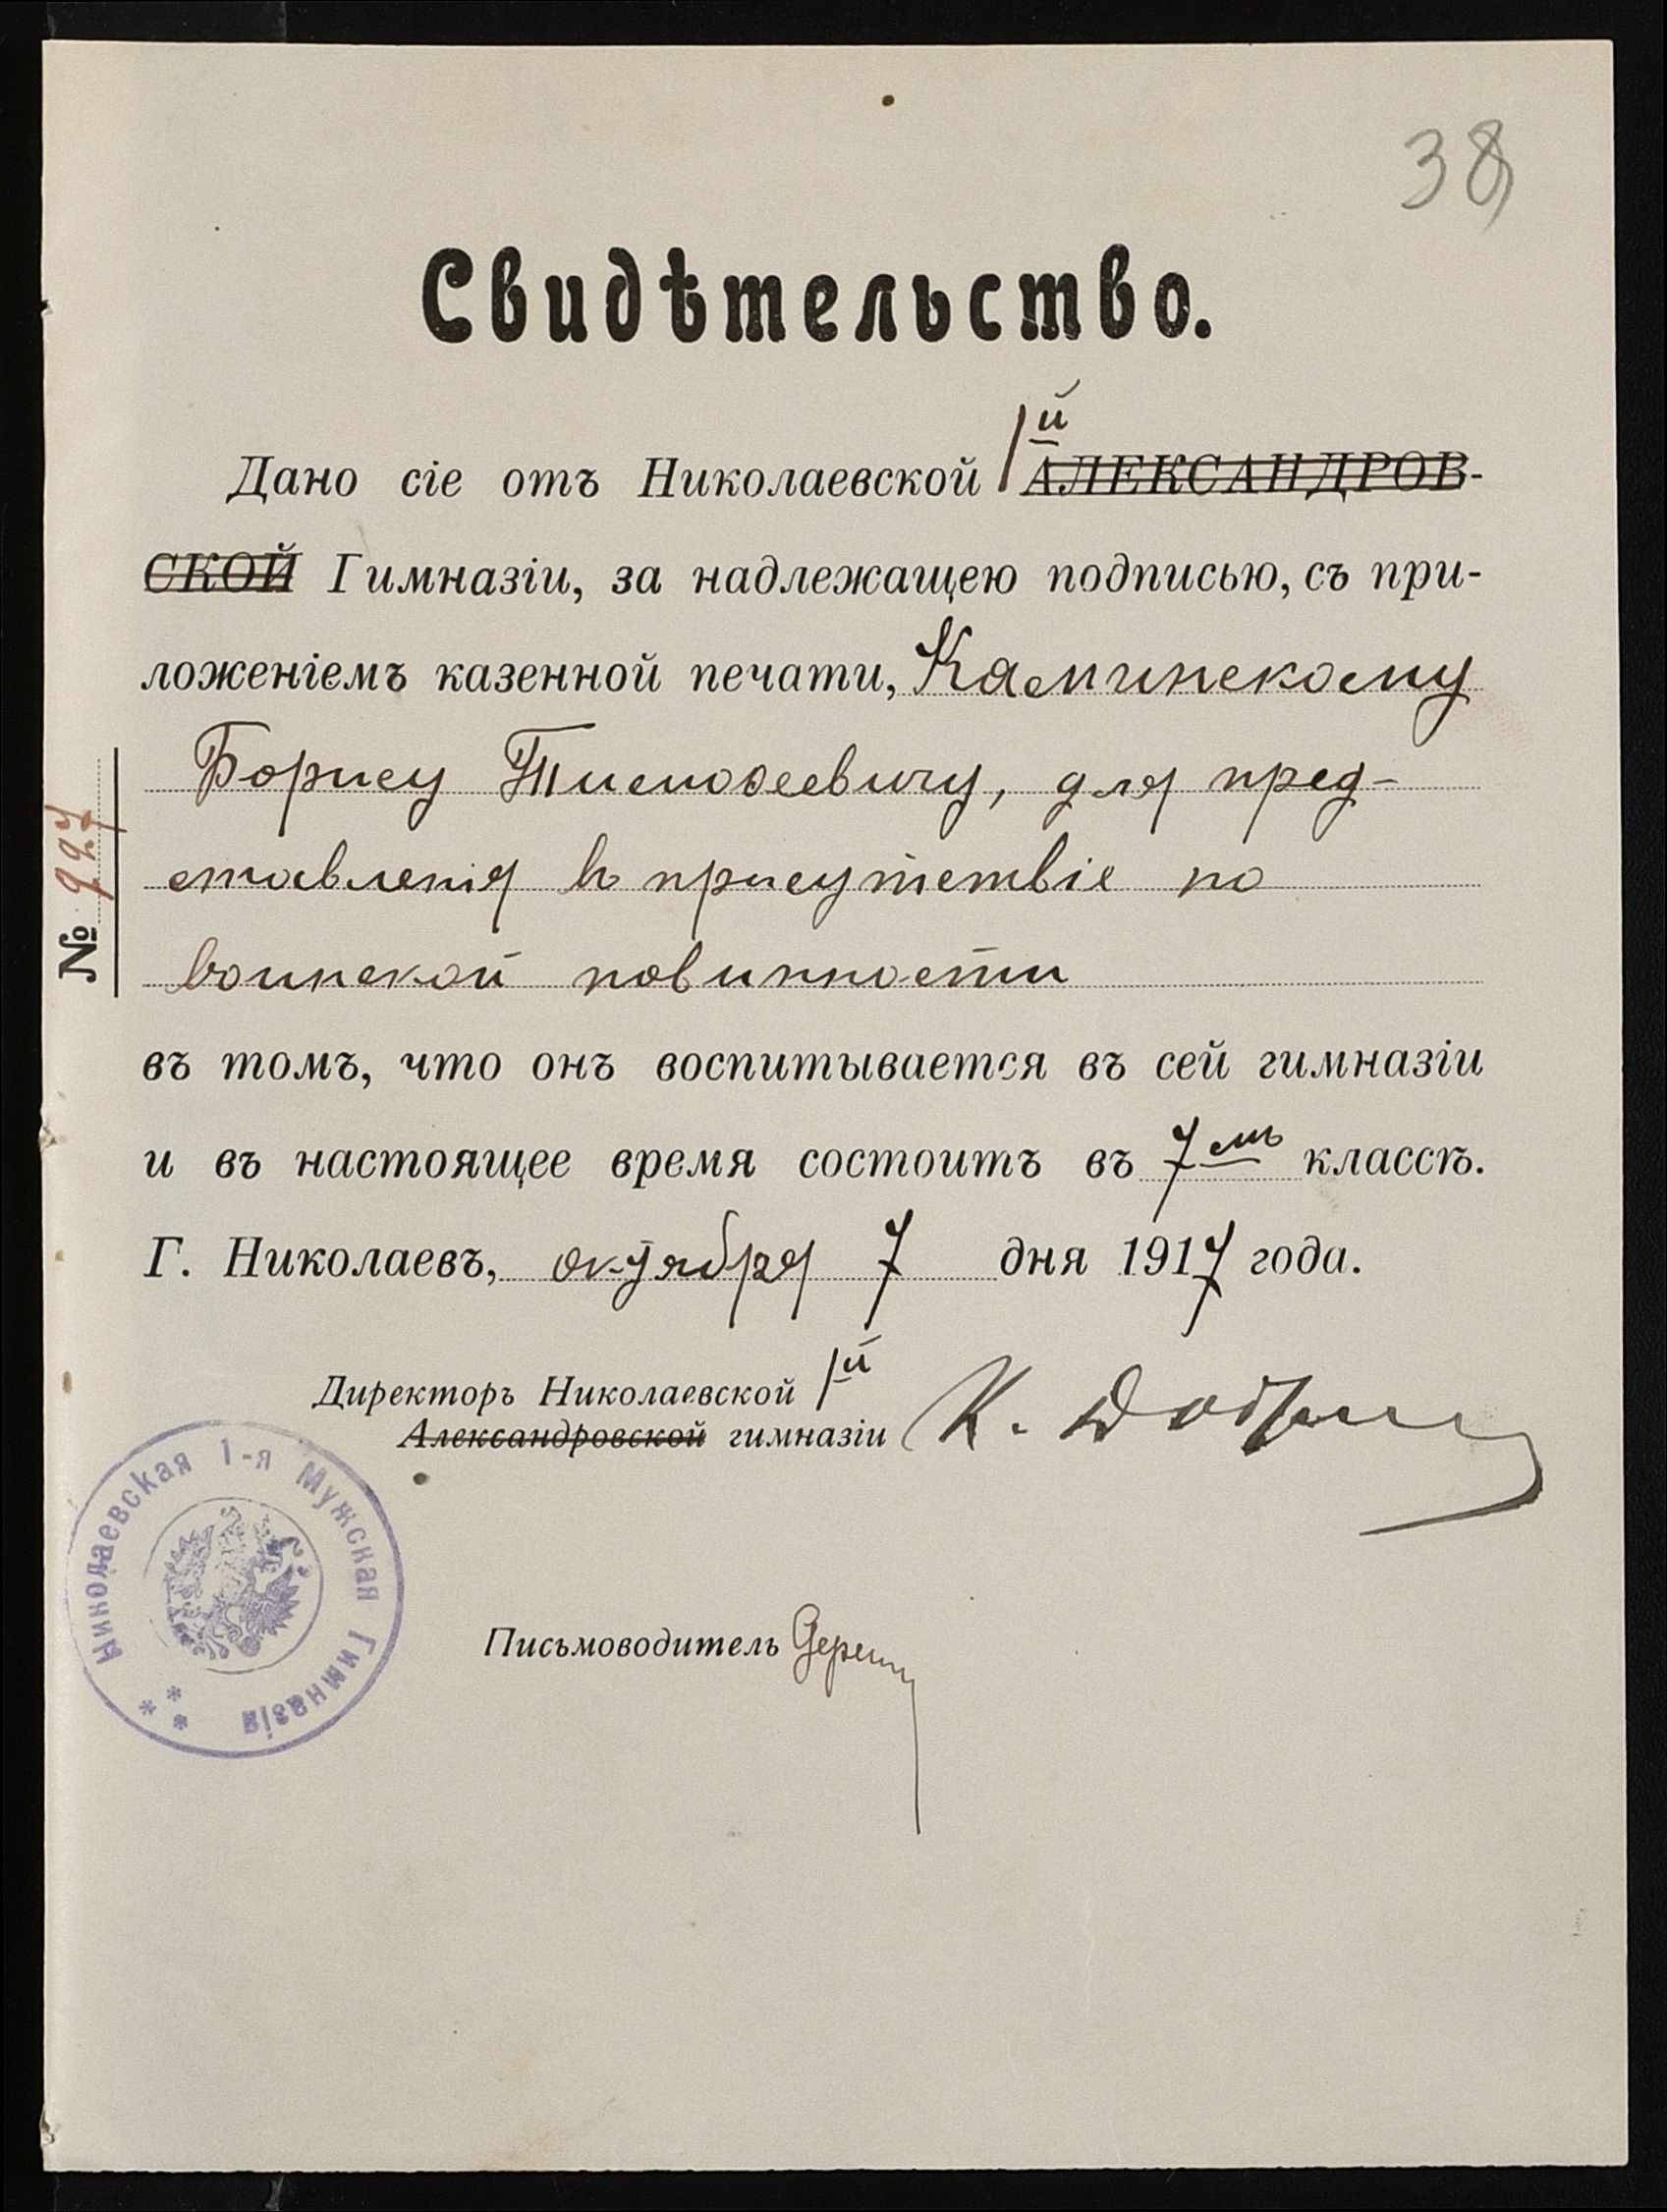 38
Свидѣтельство.
Дано сіе отъ Николаевской 1й АЛЕКСАНДРОВ-
СКОЙ Гимназіи, за надлежащею подписью, съ при-
ложеніемъ казенной печати, Каминскому
Борису Тимофеевичу, для пред-
ставленія въ присутствіе по
воинской повинности
въ томъ, что онъ воспитывается въ сей гимназіи
и въ настоящее время состоитъ въ 7мъ классѣ.
Г. Николаевъ, октября 7 дня 1917 года.
№ 997
Директоръ Николаевской 1й
Александровской гимназіи К.
Николаевская 1-я Мужская Гимназія
Письмоводитель